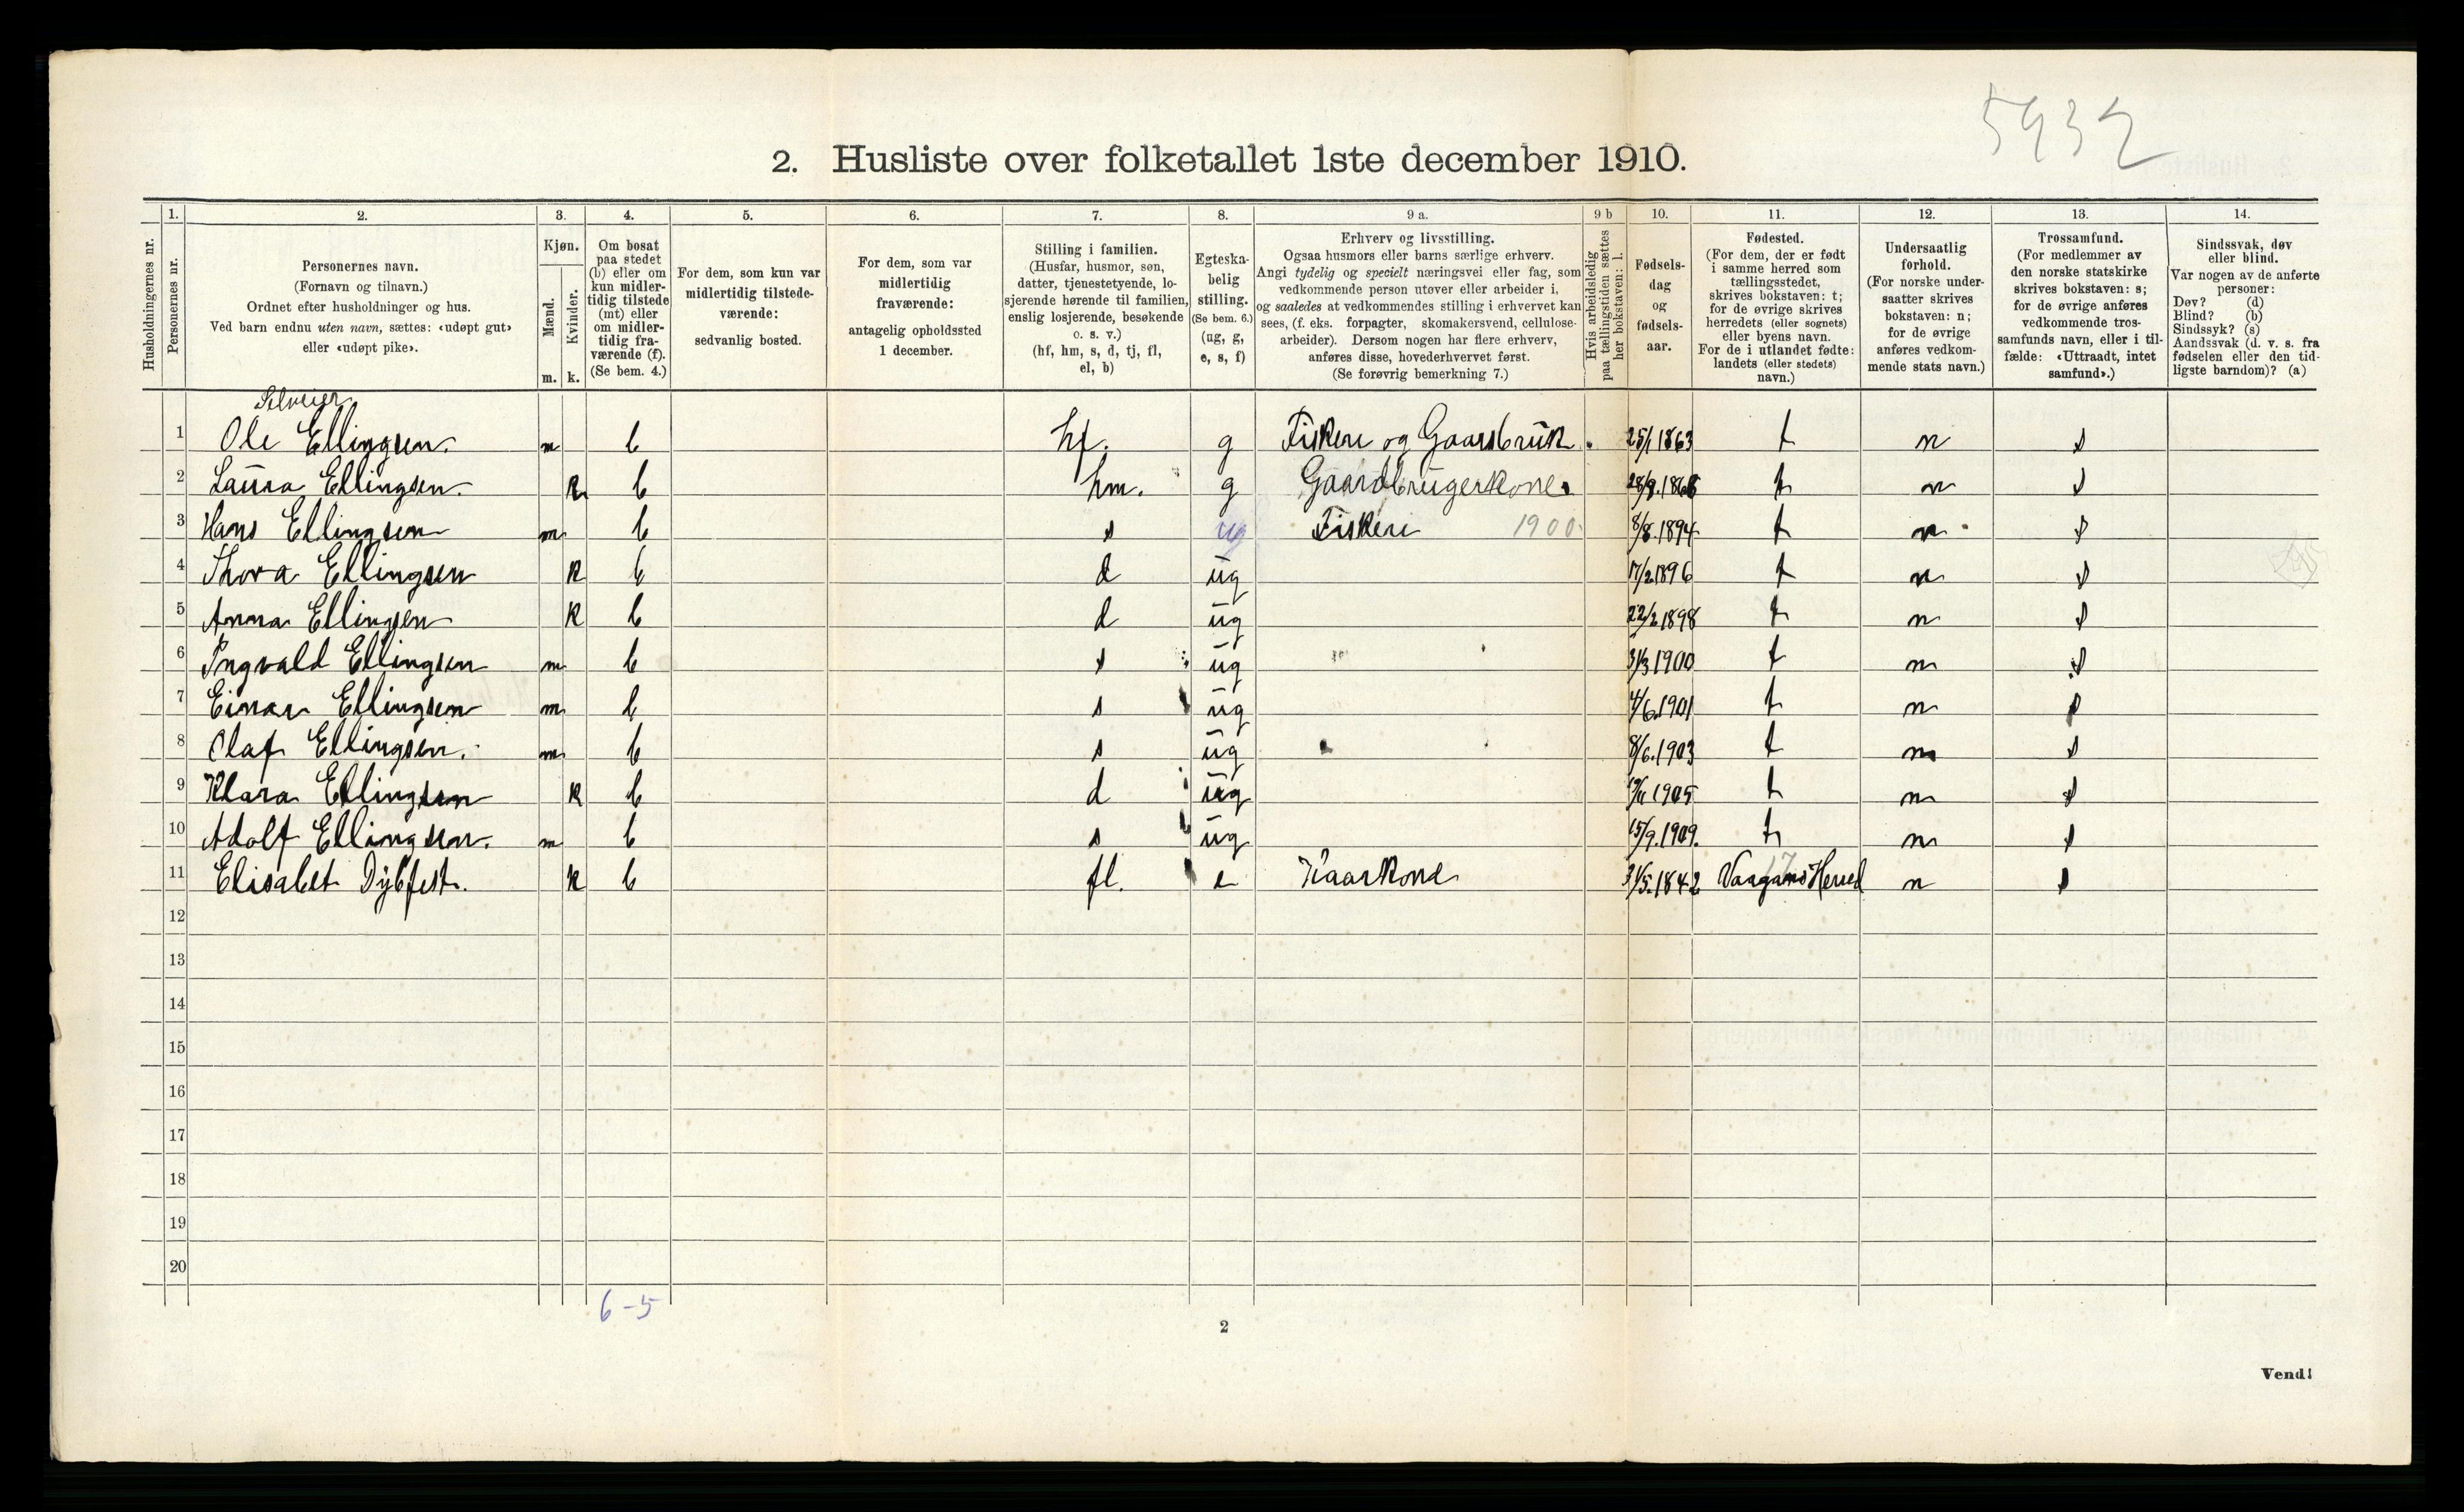 5932
2. Husliste over folketallet 1ste december 1910.
Husholdningernes nr.
1.
Personernes nr.
2.
Personernes navn.
(Fornavn og tilnavn.)
Ordnet efter husholdninger og hus.
Ved barn endnu uten navn, sættes: «udøpt gut»
eller «udøpt pike».
3.
Kjøn.
Mænd.
Kvinder.
m. k.
4.
Om bosat
paa stedet
(b) eller om
kun midler-
tidig tilstede
(mt) eller
om midler-
tidig fra-
værende (f).
(Se bem. 4.)
5.
For dem, som kun var
midlertidig tilstede-
værende:
sedvanlig bosted.
6.
For dem, som var
midlertidig
fraværende:
antagelig opholdssted
1 december.
7.
Stilling i familien.
(Husfar, husmor, søn,
datter, tjenestetyende, lo-
sjerende hørende til familien,
enslig losjerende, besøkende
o. s. v.)
(hf, hm, s, d, tj, fl,
el, b)
8.
Egteska-
belig
stilling.
(Se bem. 6.)
(ug, g,
e, s, f)
9 a.
Erhverv og livsstilling.
Ogsaa husmors eller barns særlige erhverv.
Angi tydelig og specielt næringsvei eller fag, som
vedkommende person utøver eller arbeider i,
og saaledes at vedkommendes stilling i erhvervet kan
sees, (f. eks. forpagter, skomakersvend, cellulose-
arbeider). Dersom nogen har flere erhverv,
anføres disse, hovederhvervet først.
(Se forøvrig bemerkning 7.)
9 b
Hvis arbeidsledig
paa tællingstiden sættes
her bokstaven: l.
10.
Fødsels-
dag
og
fødsels-
aar.
11.
Fødested.
(For dem, der er født
i samme herred som
tællingsstedet,
skrives bokstaven: t;
for de øvrige skrives
herredets (eller sognets)
eller byens navn.
For de i utlandet fødte:
landets (eller stedets)
navn.)
12.
Undersaatlig
forhold.
(For norske under-
saatter skrives
bokstaven: n;
for de øvrige
anføres vedkom-
mende stats navn.)
13.
Trossamfund.
(For medlemmer av
den norske statskirke
skrives bokstaven: s;
for de øvrige anføres
vedkommende tros-
samfunds navn, eller i til-
fælde: «Uttraadt, intet
samfund».)
14.
Sindssvak, døv
eller blind.
Var nogen av de anførte
personer:
Døv? (d)
Blind? (b)
Sindssyk? (s)
Aandssvak (d. v. s. fra
fødselen eller den tid-
ligste barndom)? (a)
Selveier
1 Ole Ellingsen. m b hf. g Fiskeri og Gaarsbruk. 25/1 1863 t n s
2 Laura Ellingsen. k b hm. g Gaardbrugerkone. t n s
3 Hans Ellingsen m b s ug Fiskeri 1900 8/8.1894 t n s
4 Thora Ellingsen k b d ug 17/2 1896 t n s
5 Anna Ellingsen k b d ug 22/2 1898 t n s
6 Ingvald Ellingsen m b s ug 31/3 1900 t n s
7 Einar Ellingsen m b s ug 4/6.1901 t n s
8 Olaf Ellingsen. m b s ug 8/6.1903 t n s
9 Klara Ellingsen k b d ug t n s
10 Adolf Ellingsen. m b s ug 15/9.1909. t n s
11 Elisabet Dybfest. k b fl. e Kaarkone 31/5.1842 Vaagans Herred n s
12
13
14
15
16
17
18
19
20
6-5
2
Vend!